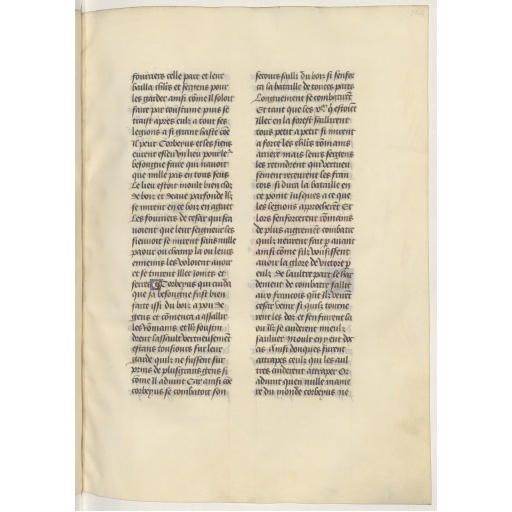 fourriers celle part et leur
bailla chlrs et sergens pour
les garder ainsi cōme il souloit
faire par coustume puis se
traist apres eulx a tout ses
legions a si grant haste cōe
il peut Corbeyus et les siens
eurent esleu un lieu pour le
besongne faire qui nauoit
que mille pas en tous sens
Le lieu estoit moult bien clos
de bois et deaue parfonde Ilz
se mirent en ce bois en aguet
Les fourriers de cesar qui sea
uoient que leur seigneur les
sieuoit se mirent sans nulle
paour ou champ la ou leurs
ennemis les vouloient auoir
et se tinrent illec ioincts et
serrez Corbeyus qui cuida
que sa besongne fust bien
faite issi du bois a pou de
gens et cōmenca a assallir
les rōmains et ilz soustin
drent lassault vertueusemēt
estans tousiours sur leur
garde quilz ne fussent sur
prins de plus grans gens si
cōme il aduint Car ainsi cōe
corbeyus se combatoit son
secours sailli du bois si renfor
ca la bataille de toutes pars
Longuement se combatirēt
Et tant que les qui estoiēt
illec en la forest saillirent
tous petit a petit si mirent
a force les chlrs rōmains
arriere mais leurs sergens
les retindrent qui vertueu
sement recurent les fran
cois si dura la bataille en
ce point iusques a ce que
les legions approcherēt Et
lors senforcerent rōmains
de plus asprement combatre
quilz neurent fait par auant
ainsi cōme silz voulsissent
auoir la gloire de victoire p
eulx De laultre part le har
dement de combatre faillit
aux francois quāt ilz virent
cesar venir si quilz tourne
rent les dos et senfuirent la
ou ilz se cuiderent mieulx
sauluer moult en y ent doc
cis Ainsi donques furent
attrapes ceulx qui les aul
tres cuiderent attraper Or
aduint quen nulle manie
re du monde corbeyus ne